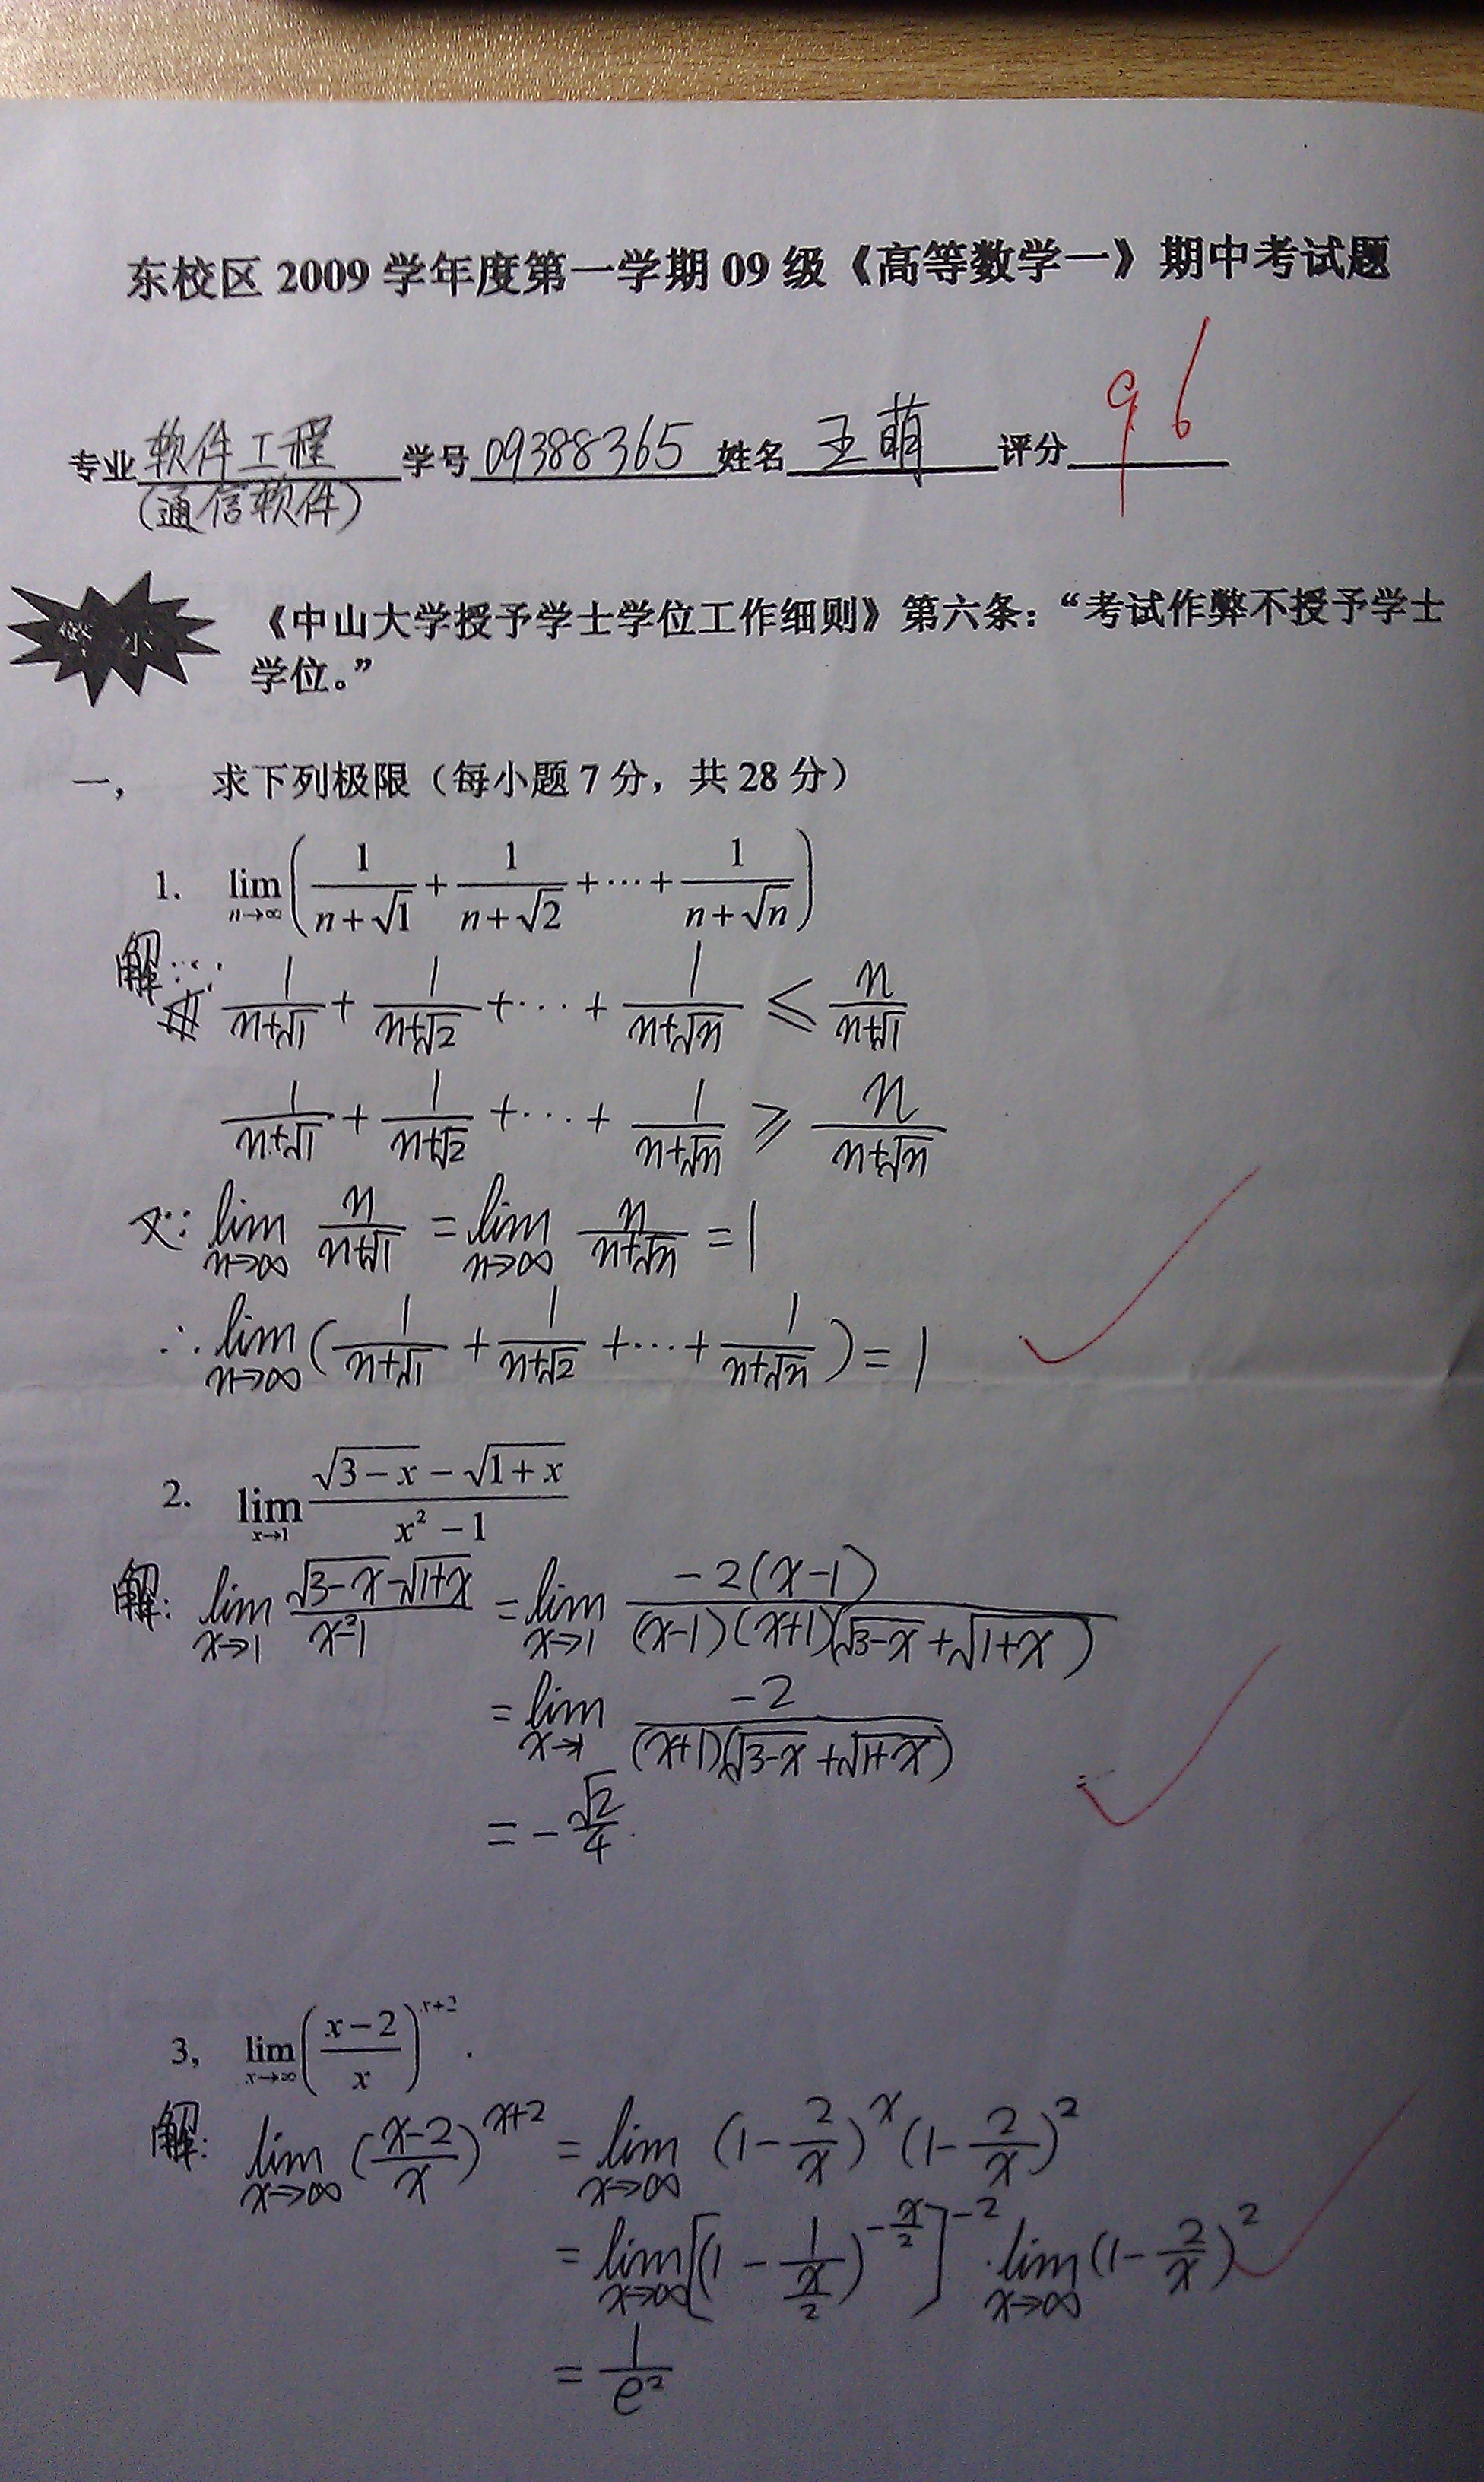 东校区 2009 学年度第一学期 09 级《高等数学一》期中考试题
专业 软件工程 学号 09388365 姓名 王萌 评分 96
(通信软件)
警示
《中山大学授予学士学位工作细则》第六条：“考试作弊不授予学士
学位。”
一， 求下列极限（每小题 7 分，共 28 分）
1. lim_{n→∞} (1/(n+√1) + 1/(n+√2) + ⋯ + 1/(n+√n))
解：∵ 1/(n+√1) + 1/(n+√2) + ⋯ + 1/(n+√n) ≤ n/(n+√1)
1/(n+√1) + 1/(n+√2) + ⋯ + 1/(n+√n) ≥ n/(n+√n)
又∵ lim_{n→∞} n/(n+√1) = lim_{n→∞} n/(n+√n) = 1
∴ lim_{n→∞} (1/(n+√1) + 1/(n+√2) + ⋯ + 1/(n+√n)) = 1
2. lim_{x→1} (√(3−x) − √(1+x))/(x² − 1)
解: lim_{x→1} (√(3−x) − √(1+x))/(x²−1) = lim_{x→1} −2(x−1)/((x−1)(x+1)(√(3−x) + √(1+x)))
= lim_{x→1} −2/((x+1)(√(3−x) + √(1+x)))
= −√2/4.
3, lim_{x→∞} ((x−2)/x)^{x+2} .
解: lim_{x→∞} ((x−2)/x)^{x+2} = lim_{x→∞} (1 − 2/x)^x (1 − 2/x)^2
= lim_{x→∞} [(1 − 1/(x/2))^{−x/2}]^{−2} · lim_{x→∞} (1 − 2/x)^2
= 1/e²